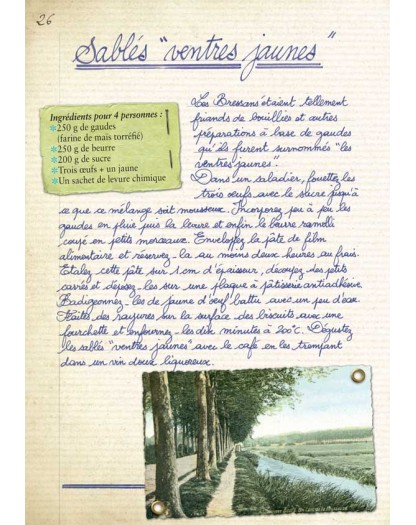 26
Sablés "ventres jaunes"
Ingrédients pour 4 personnes :
*250 g de gaudes
(farine de maïs torréfié)
*250 g de beurre
*200 g de sucre
*Trois œufs + un jaune
*Un sachet de levure chimique
Les Bressans étaient tellement
friands de bouillies et autres
préparations à base de gaudes
qu'ils furent surnommés "les
ventres jaunes".
Dans un saladier, fouettez les
trois œufs avec le sucre jusqu'à
ce que ce mélange soit mousseux. Incorporez peu à peu les
gaudes en pluie puis la levure et enfin le beurre ramolli
coupé en petits morceaux. Enveloppez la pâte de film
alimentaire et réservez-la au moins deux heures au frais.
Etalez cette pâte sur 1 cm d'épaisseur, découpez des petits
carrés et déposez-les sur une plaque à pâtisserie antiadhésive.
Badigeonnez-les de jaune d'œuf battu avec un peu d'eau.
Faites des rayures sur la surface des biscuits avec une
fourchette et enfournez-les dix minutes à 200°C. Dégustez
les sablés "ventres jaunes" avec le café en les trempant
dans un vin doux liquoreux.